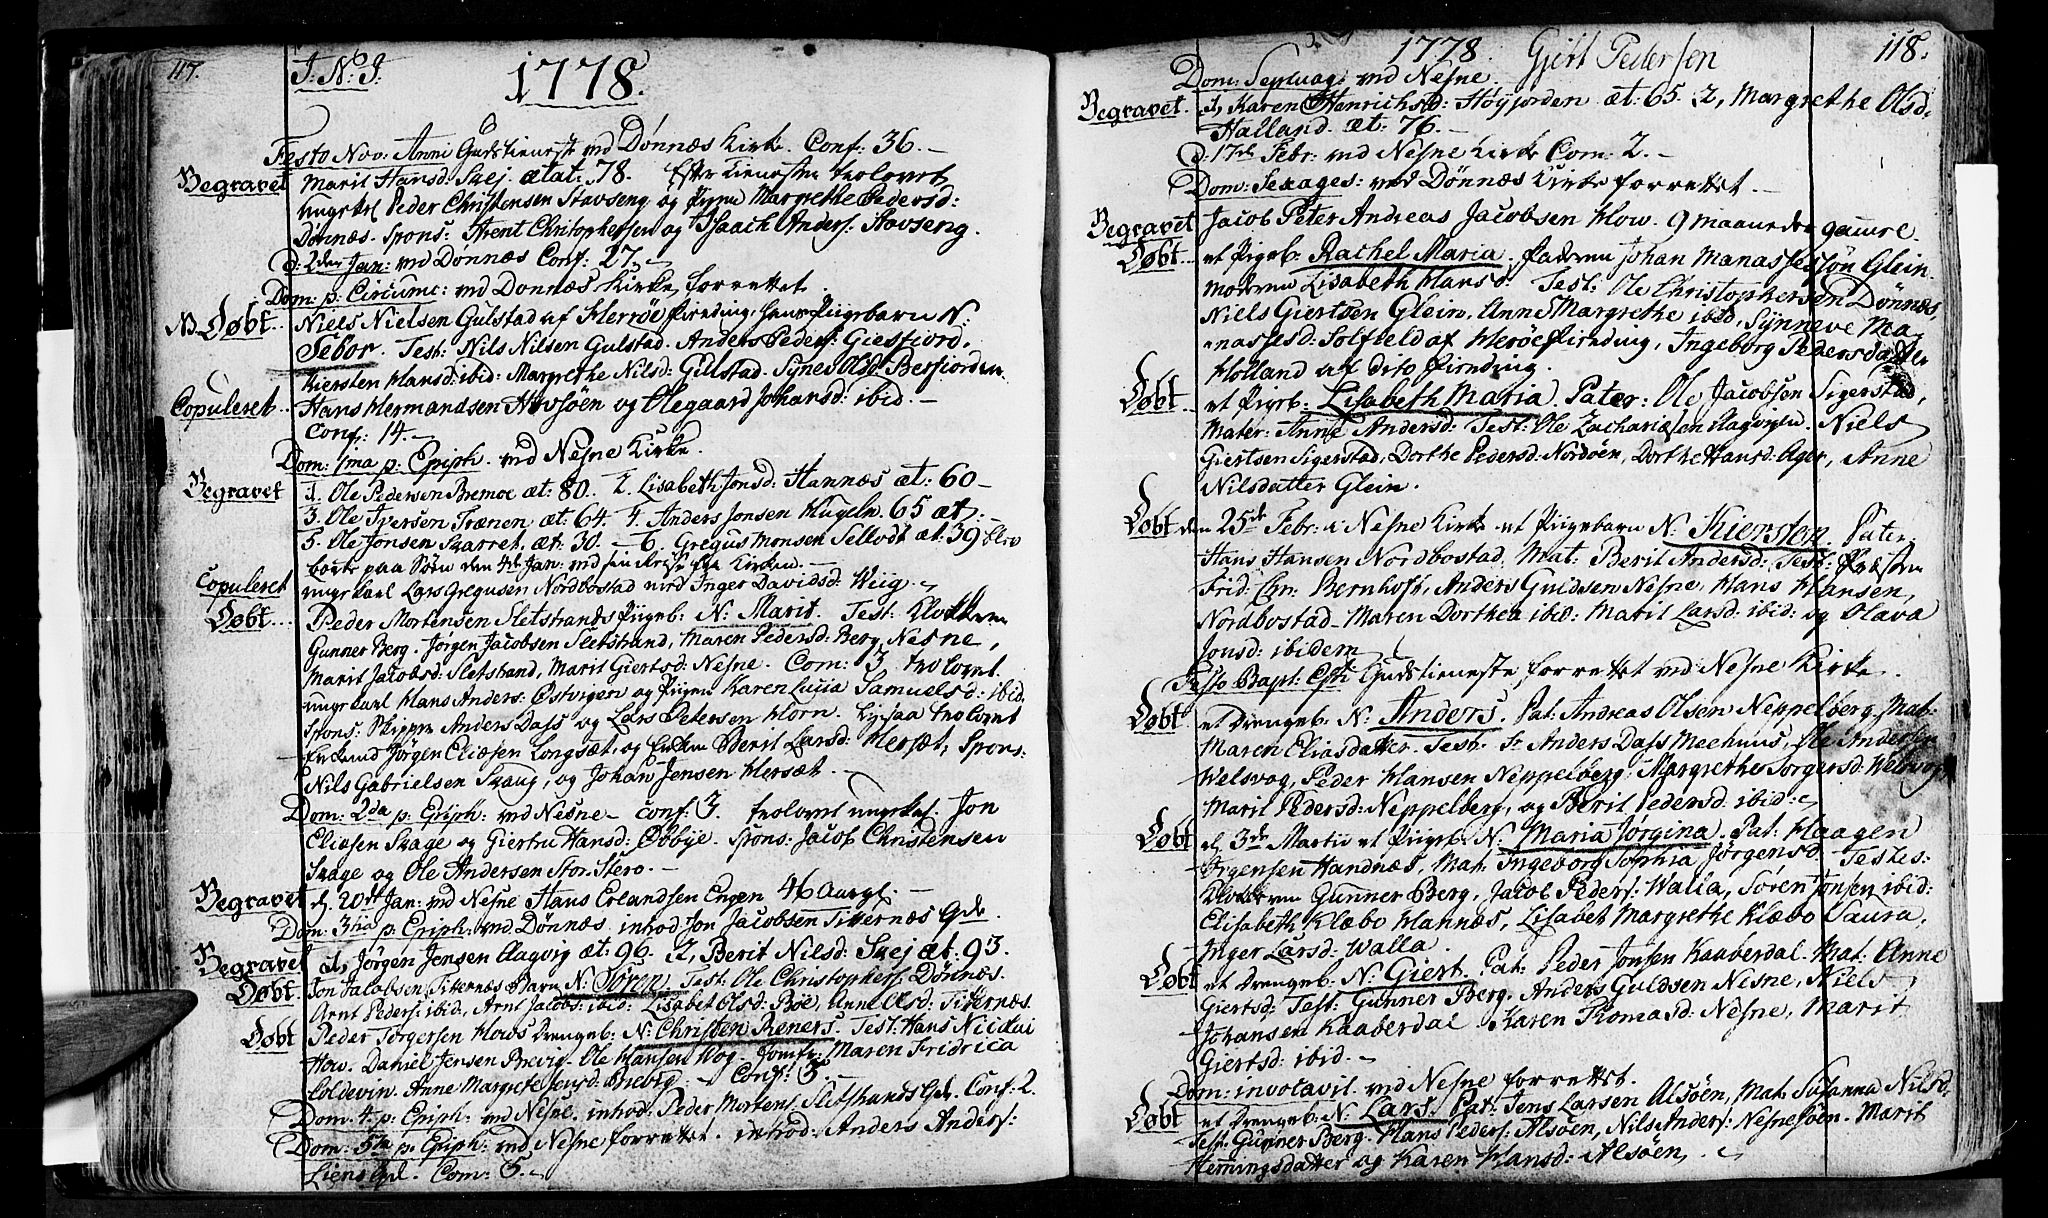 117.
J: N: J:
1778.
Festo Nov: Anni Gudstieneste ved Dønnæs Kirke. Conf: 36. –
Begravet Marit Hansd: Svej. ætat: 78. Efter tienesten trolovet
ungkrl Peder Christensen Stavseng og Pigen Margrethe Pedersd:
Dønnæs. Spons: Arent Christophersen og Isaach Anders: Stavseng.
d: 2den Jan: ved Dønnæs Conf: 27. –
Dom: p: Circumc: ved Dønnæs Kirke forrettet.
NB Døbt Niels Nielsen Gulstad af Herrøe Pirnding: hans Pigebarn N:
Sebor. Test: Nils Nilsen Gulstad. Anders Peders: Giesfiord.
Kiersten Hansd: ibid: Margrethe Nilsd: Gulstad. Synev Olsd: Besfiorden.
Copuleret Hans Hermandsen Havsøen og Olegaard Johansd: ibid. –
Conf: 14. –
Dom: 1ma p: Epiph. ved Nesne Kirke.
Begravet 1. Ole Pedersen Bremoe æt: 80. 2. Lisabeth Jonsd: Hannæs æt: 60 –
3. Ole Iversen Trænen æt: 64. 4. Anders Jonsen Hugeln. 65 æt. –
5. Ole Jonsen Skarret. æt: 30. – 6. Gregus Monsen Selvodt æt: 39 blev
borte paa Søen den 4de Jan: ved sin Reise fra Kirken. –
Copuleret ungkarl Lars Gregusen Nordbostad med Inger Davidsd: Wiig. –
Døbt Peder Mortensen Sletstrands Pigeb: N: Marit. Test: Klokkeren
Gunner Berg. Jørgen Jacobsen Sletstrand, Maren Pedersd: Berg, Nesne,
Marit Jacobsd: Sletstrand, Marit Giertsd: Nesne. Com: 3. trolovet
ungkarl Hans Anders: Østvigen og Pigen Karen Lucia Samuelsd: ibid.
Spons: Skipper Anders Dass og Lars Petersen Horn. Ligesaa trolovet
Enkemd Jørgen Eliesen Longsæt, og Enken Berit Larsd: Hersæt, Spons:
Nils Gabrielsen Skaug, og Johan Jensen Hersæt. –
Dom: 2da p: Epiph: ved Nesne – Conf: 3. trolovet ungkrl. Jon
Eliesen Skage og Giertru Hansd: Øbye. Spons: Jacob Christensen
Skage og Ole Andersen Stor-Stero. –
Begravet d. 20de Jan: ved Nesne Hans Erlandsen Engen 46 Aar gl. –
Dom: 3tia p: Epiph: ved Dønnæs. introd: Jon Jacobsen Titternæs Qde.
Begravet 1, Jørgen Jensen Aagvig æt: 96. 2, Berit Nilsd: Svej æt: 93.
Døbt Jon Jacobsen Titternæs Barn N: Søren, Test: Ole Christophers: Dønnæs.
Arnt Peders: ibid, Arnt Jacobs: ibid: Lisabet Olsd: Bøe, Anne Olsd: Titternæs.
Døbt Peder Torgersen Hows Drengeb: N: Christen Reners. Test: Hans Nicolai
How. Daniel Jensen Brevig. Ole Hansen Wog. Jomfr: Maren Fridrica
Coldevin. Anne Margrete Jensd: Brevig. – Conf: 3. –
Dom: 4. p: Epiph: ved Nesne. introd: Peder Mortens: Sletstrands Qde. Conf: 2.
Dom: 5ta p: Epiph: ved Nesne forrettet. introd: Anders Anders:
Liens Qde. Com: 5. –
1778. Gjert Pedersen 118.
Dom: Septuag: ved Nesne
Begravet. 1, Karen Henrichsd: Høyjorden æt: 65. 2, Margrethe Olsd:
Halland. æt: 76. –
d. 17de Febr: ved Nesne Kirke Com: 2. –
Dom: Sexages: ved Dønnæs Kirke forrettet. –
Begravet Jacob Peter Andreas Jacobsen How. 9 maaneder gamle.
Døbt et Pigeb: Rachel Maria. Faderen Johan Manassesøn Glein.
moderen Lisabeth Hansd: Test: Ole Christophersen Dønnæs,
Niels Giertsen Glein, Anne Margrethe ibid, Synneve Ma-
nassesd: Solfield af Herøe Pirnding, Ingeborg Pedersdatter
Holland af dito Pirnding.
Døbt et Pigeb: Lisabeth Maria. Pater: Ole Jacobsen Sigerstad,
Mater: Anne Andersd: Test: Ole Zachariesen Aagvigen. Niels
Giertsen Sigerstad, Dorthe Pedersd: Nordøen, Dorthe Hansd: Ager, Anne
Nilsdatter Glein.
Døbt den 25de Febr: i Nesne Kirke et Pigebarn N: Kiersten. Pater
Hans Hansen Nordbostad. Mat: Berit Andersd: Test: Præsten
Frid: Chr: Bernhoft, Anders Guldsen Nesne, Hans Hansen,
Nordbostad – Maren Dorthea ibid: Marit Larsd: ibid: og Olava
Jonsd: ibidem.
Festo Bapt: Chti: Gudstieneste forrettet ved Nesne Kirke.
Døbt et Drengeb: N: Anders. Pat: Andreas Olsen Neppelberg. Mat:
Maren Eliasdatter. Test: Sr. Anders Dass Meehuus, Ole Andersen
Welsvog, Peder Hansen Neppelberg, Margrethe Torgersd: Welsvog,
Marit Pedersd: Neppelberg, og Berit Pedersd: ibid: –
Døbt d. 3de Martii et Pigeb: N: Maria Jørgina. Pat: Haagen
Jørgensen Handnæs, Mat: Ingeborg Sophia Jørgensd: Testes:
Klokkeren Gunner Berg, Jacob Peders: Walla, Søren Jonsen ibid:
Elisabeth Klæbo Hannæs, Lisabet Margrethe Klæbo Saura,
Inger Larsd: Walla.
Døbt et Drengeb: N: Giert. Pat: Peder Jonsen Kaaberdal. Mat: Anne
Giertsd: Test: Gunner Berg. Anders Guldsen Nesne, Niels
Johansen Kaaberdal Karen Thomasd: Nesne, Marit
Giertsd: ibid. –
Dom: invocavit. ved Nesne forrettet.
Døbt et Drengeb: N: Lars. Pat: Jens Larsen Alsøen, Mat: Susanna Nilsd:
Test: Gunner Berg. Hans Peders: Alsøen, Nils Anders: Nesnesøen. Marit
Hemmingsdatter og Karen Hansd: Alsøen. –